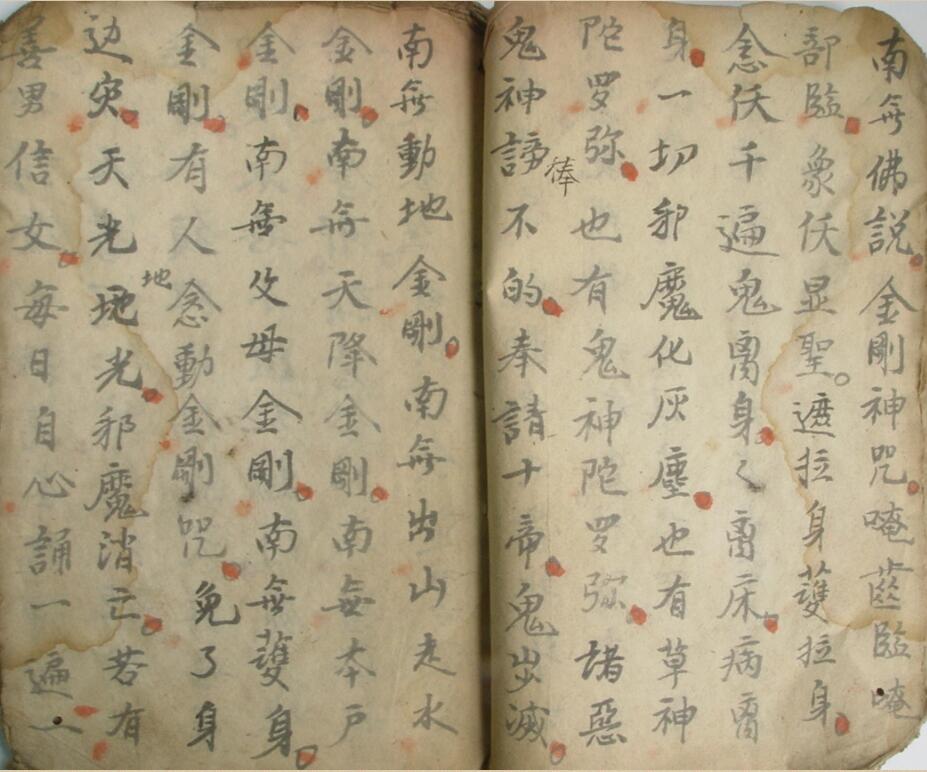 南無佛說金剛神咒唵齒臨唵
部臨衆仸显聖遮拉身䕶拉身
念仸千遍鬼离身々离床病离
身一切邪魔化灰塵也有草神
陀罗弥也有鬼神陀罗弥諸惡
鬼神諦捧不的奉請十帝鬼出滅
南無動地金剛南無出山走水
金剛南無天降金剛南無本户
金剛南無父母金剛南無䕶身
金剛有人念動地金剛咒免了身
边灾天光地光邪魔消亡若有
善男信女每日自心誦一遍一